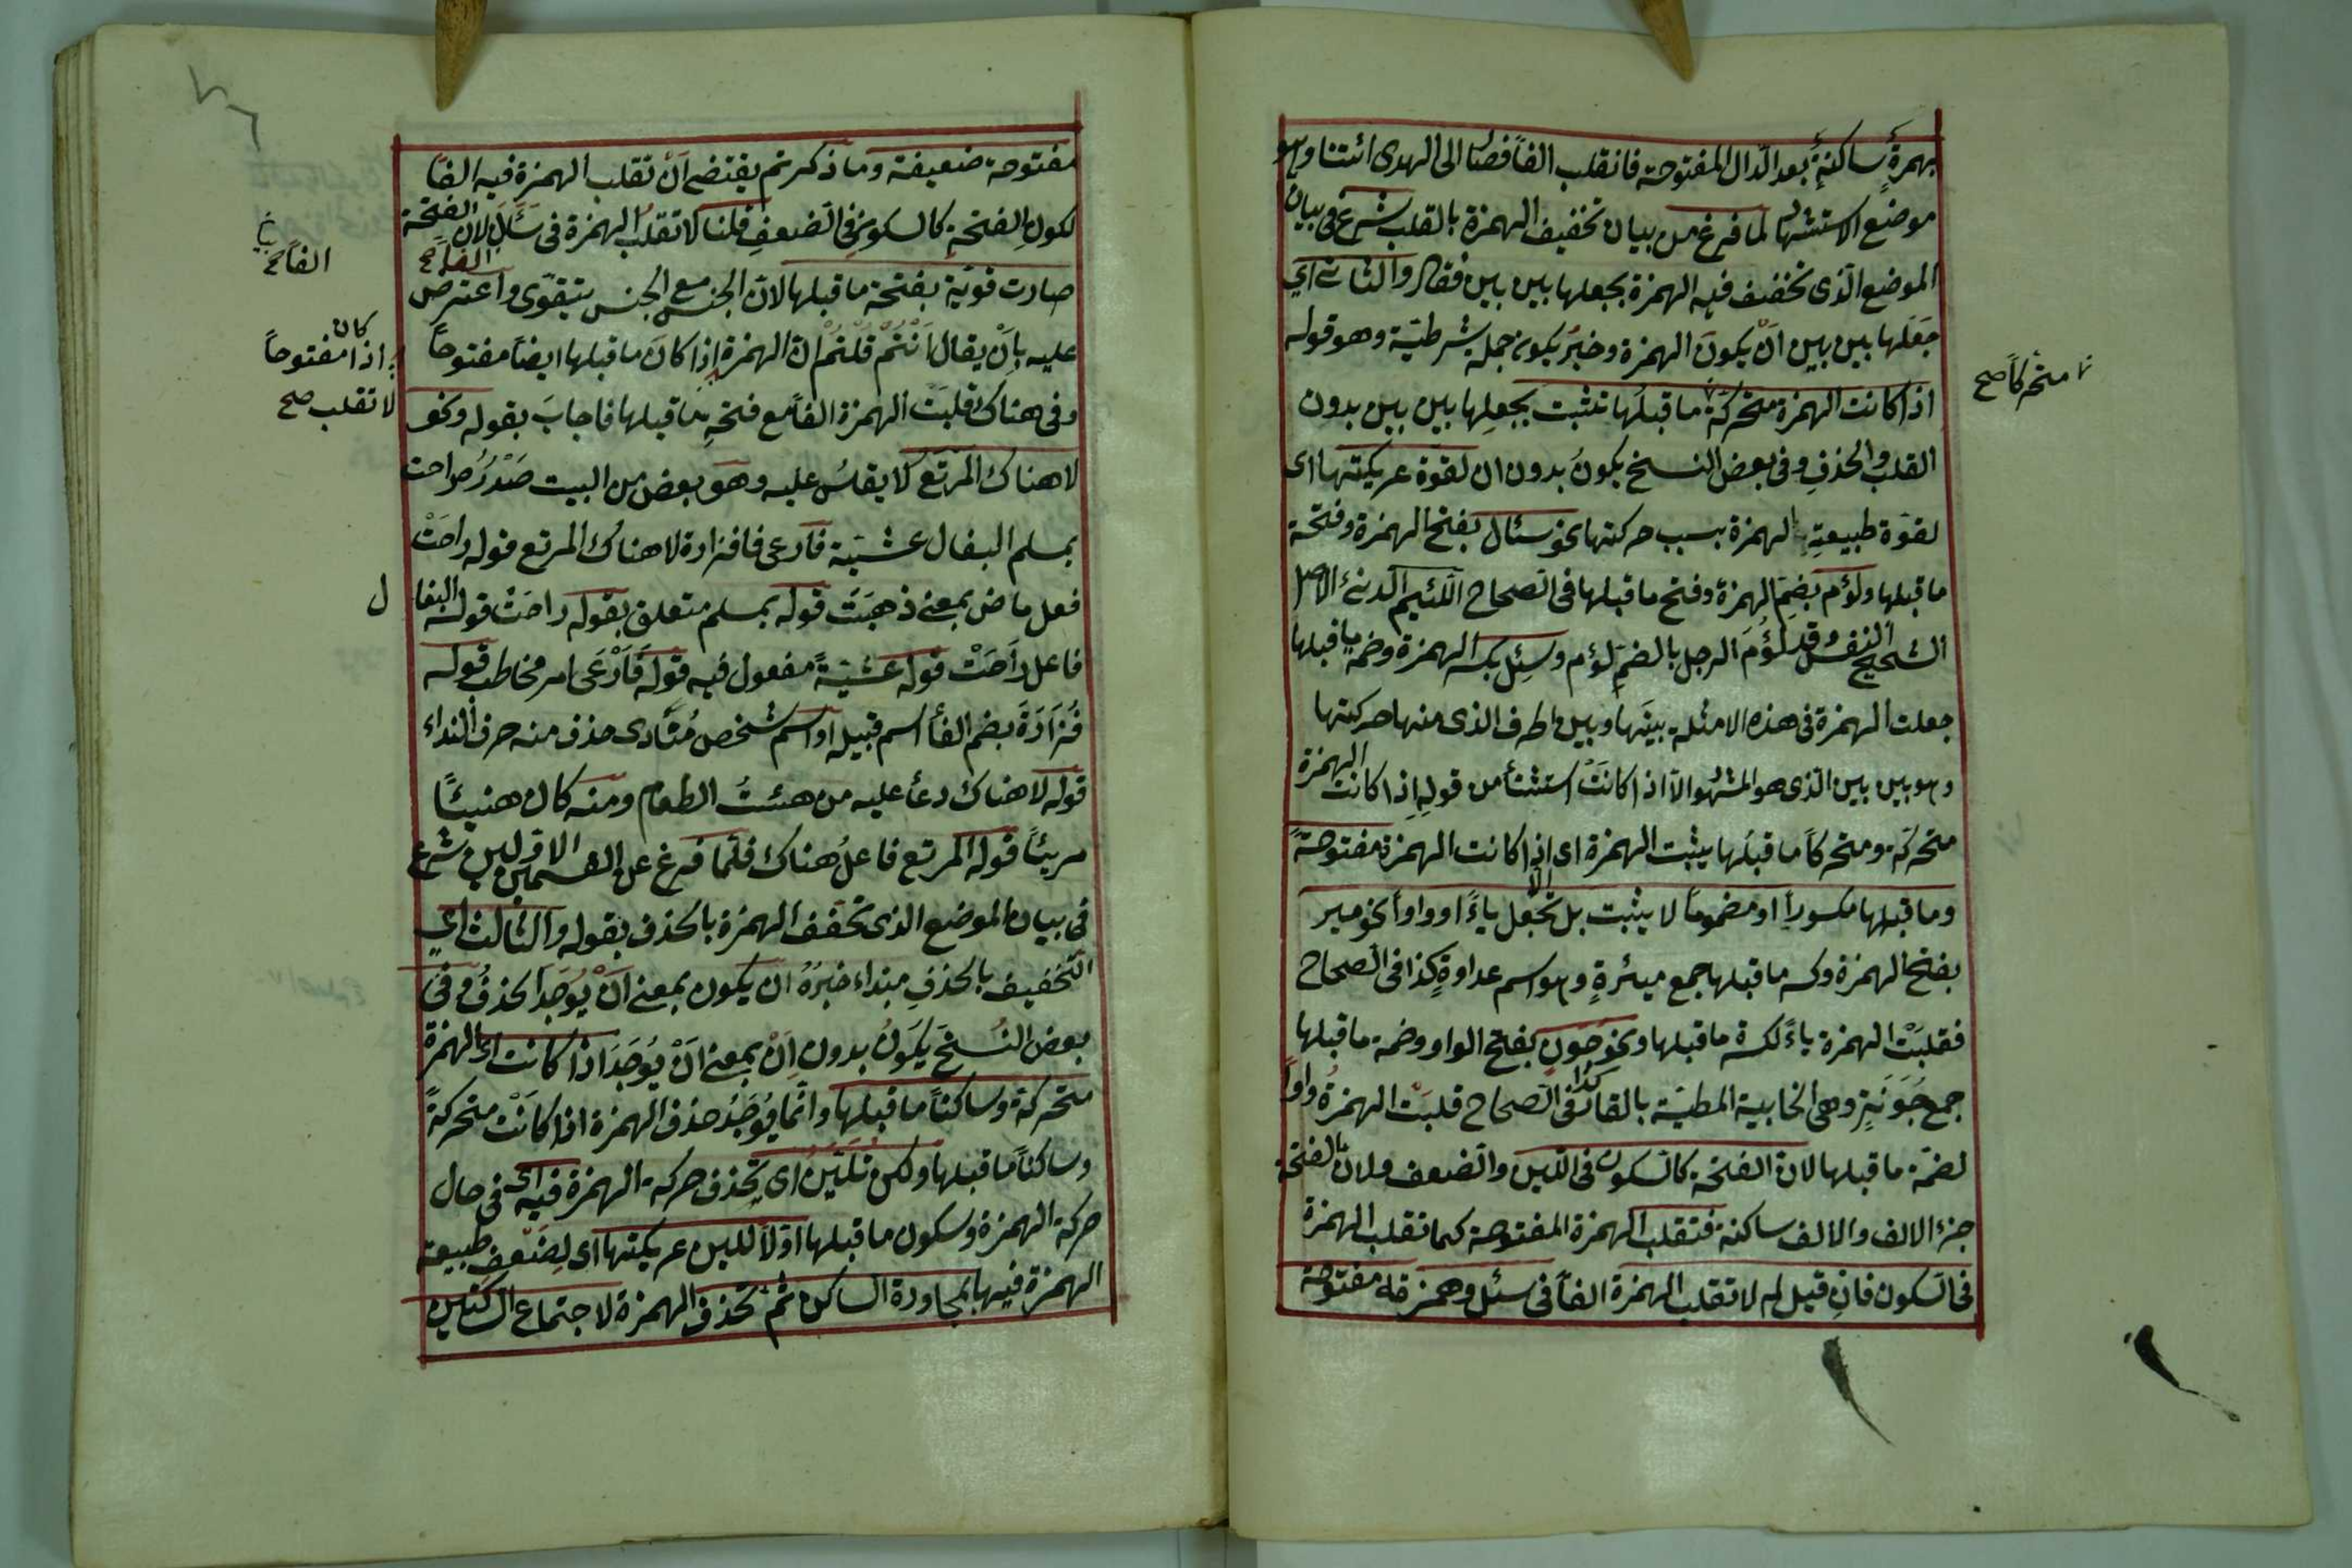 بهمزةٍ ساكنةٍ بعد الدال المفتوحة فانقلب الفاً فصار الى الهدى ائتنا وهو
موضع الاستشهاد لما فرغ من بيان تخفيف الهمزة بالقلب شرع فى بيان
الموضع الذى تخفف فيه الهمزة بجعلها بين بين فقال والثانى اى
جعلها بين بين ان يكون الهمزة وخبر يكون جملة شرطية وهو قوله
اذا كانت الهمزة متحركة ما قبلها تثبت بجعلها بين بين بدون
متحركاً صح
القلب والحذف وفى بعض النسخ يكونُ بدون ان لقوة عريكتها اى
لقوة طبيعةِ الهمزة بسبب حركتها نحو سئال بفتح الهمزة وفتحة
ما قبلها ولؤم بضم الهمزة وفتح ما قبلها فى الصحاح اللئيم الدنئ الاصل
الشحيح النفس وقد لؤُمَ الرجل بالضم لؤم وسئِل بكسر الهمزة وضم ما قبلها
جعلت الهمزة فى هذه الامثلة بينَها وبين الحرف الذى منها حركتها
وهو بين بين الذى هو المشهور الا اذا كانَتْ استثنأ من قولِهِ اذا كانت الهمزة
متحركة ومتحركاً ما قبلها يثبت الهمزة اى الا اذا كانت الهمزة مفتوحةً
وما قبلها مكسوراً او مضموماً لا يثبت بل تجعل ياءً او واواً نحو مير
بفتح الهمزة وكسر ما قبلها جمع ميئرةٍ وهو اسم عداوةٍ كذا فى الصحاح
فقلبَتْ الهمزة ياءً لكسرة ما قبلها ونحو جُوَن بفتح الواو وضمة ما قبلها
جمع جُوَنَةٍ وهى الخابية المطلية بالقار كذا فى الصحاح قلبَت الهمزةُ واواً
لضمّة ما قبلها لان الفتحة كالسكون فى اللين والضعف ولان الفتحة
جزء الالف والالف ساكنة فتقلب الهمزة المفتوحة كما تقلب الهمزة
فى السكون فان قيل لم لا تقلب الهمزة الفاً فى سئل وهمزته مفتوحة
مفتوحة ضعيفة وما ذكرتم يقتضى اَنْ تقلب الهمزة فيه الفاً
لكونِ الفتحةِ كالسكون فى الضعفِ قلنا لا تقلب الهمزة فى سَئَلَ لان الفتحة
الفاً صح
صارت قويّة بفتحة ما قبلها لانّ الجنس مع الجنس يتقوّى واعترض
عليه باَنْ يقال اَنْتُمْ قُلْتُمْ انّ الهمزة اذا كانَ ما قبلها ايضاً مفتوحاً
اذا كان مفتوحاً
لا تقلب صح
وفى هناك قلبَت الهمزة الفاً مع فتحةِ ما قبلها فاجابَ بقوله ونحو
لا هناك المرتع لا يقاسُ عليه وهو بعض من البيت صَدْرُ راحت
بمسلم البغال عشيّة فارعى فافزارة لا هناك المرتع قوله راحَتْ
فعل ماضٍ بمعنى ذهبَتْ قوله بمسلم متعلق بقوله راحَتْ قوله البغال
فاعل راحَتْ قوله عشيّةً مفعول فيه قوله فَارْعَى امر مخاطب قوله
فُزَارَةَ بضم الفأ اسم قبيله او اسم شخص مُنَادى حذف منه حرف النداء
قوله لا هناك دعأ عليه من هنئت الطعام ومنه كان هنيئًا
مريئاً قوله المرتع فاعلُ هناك فلمّا فرغ عن القسمين الاولين شرع
فى بيان الموضع الذى تخفف الهمزة بالحذف بقوله والثالث اى
التخفيف بالحذفِ مبتداء خبرُهُ ان يكون بمعنى اَنْ يُوجَدَ الحذفُ وفى
بعض النُسَخ يَكونُ بدون اَنْ بمعنى اَنْ يُوجَدَ اذا كانت اى الهمزة
متحركة وساكناً ما قبلها وانّما يُوجَدُ حذف الهمزة اذا كانَتْ متحركةً
وساكناً ما قبلها ولكن تليّن اى تحذف حركة الهمزة فيه اى فى حال
حركة الهمزة وسكون ما قبلها اوّلاً للين عريكتها اى لِضَعْفِ طبيعة
الهمزة فيها بمجاورة الساكن ثم تحذف الهمزة لاجتماع الساكنين